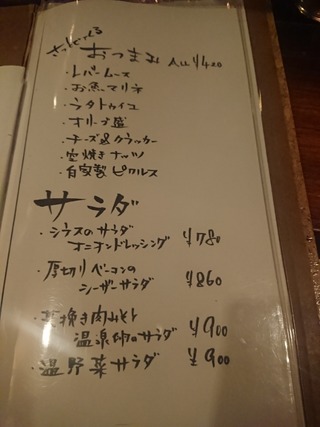 さっとでる
おつまみ 各¥420
・レバームース
・お魚マリネ
・ラタトゥイユ
・オリーブ盛
・チーズ&クラッカー
・窯焼きナッツ
・自家製ピクルス
サラダ
・シラスのサラダ
オニオンドレッシング ¥780
・厚切りベーコンの
シーザーサラダ ¥860
・挽き肉みそと
温泉卵のサラダ ¥900
・温野菜サラダ ¥900